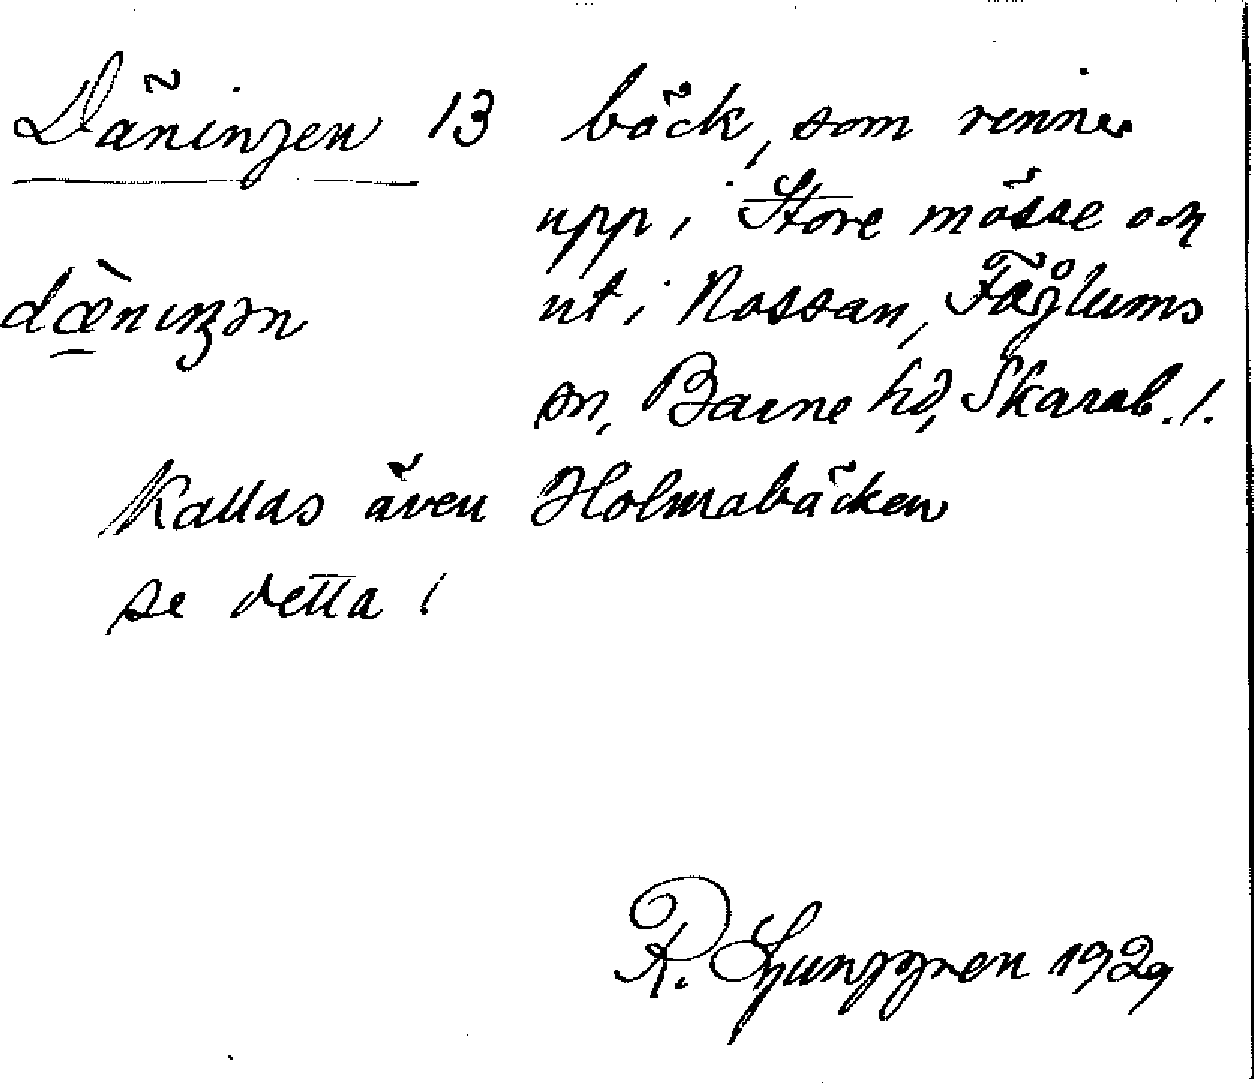 Däningen 13 bäck, som rinner
upp i Store mosse och
dæ̀niŋən ut i Nossan, Fåglums
sn, Barne hd, Skarab. l.
Kallas även Holmabäcken
se detta!
R. Ljunggren 1929